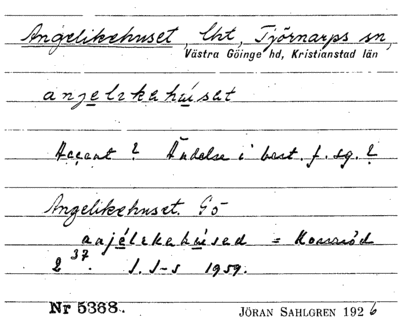 Angelikehuset, lht, Tjörnarps sn,
Västra Göinge hd, Kristianstad län
anjelekahu̇sat
Accent? Ändelse i best. f. sg.?
Angelikehuset. Gö
=
2 37. J. J-s 1959.
Nr 5368. JÖRAN SAHLGREN 1926